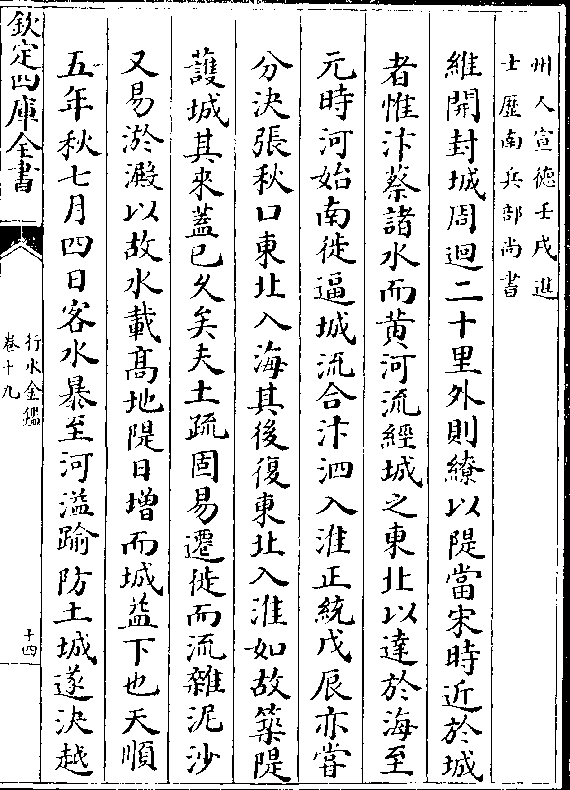 州人宣德壬戌進
士歷南兵部尚書
維開封城周迴二十里外則繚以隄當宋時近於城
者惟汴蔡諸水而黄河流經城之東北以達於海至
元時河始南徙逼城流合汴泗入淮正統戊辰亦嘗
分决張秋口東北入海其後復東北入淮如故築隄
䕶城其來蓋已久矣夫土疏固易遷徙而流雜泥沙
又易淤澱以故水載髙地隄日增而城益下也天順
五年秋七月四日客水暴至河溢踰防土城遂决越
欽定四庫全書
行水金鑑
卷十九
十四